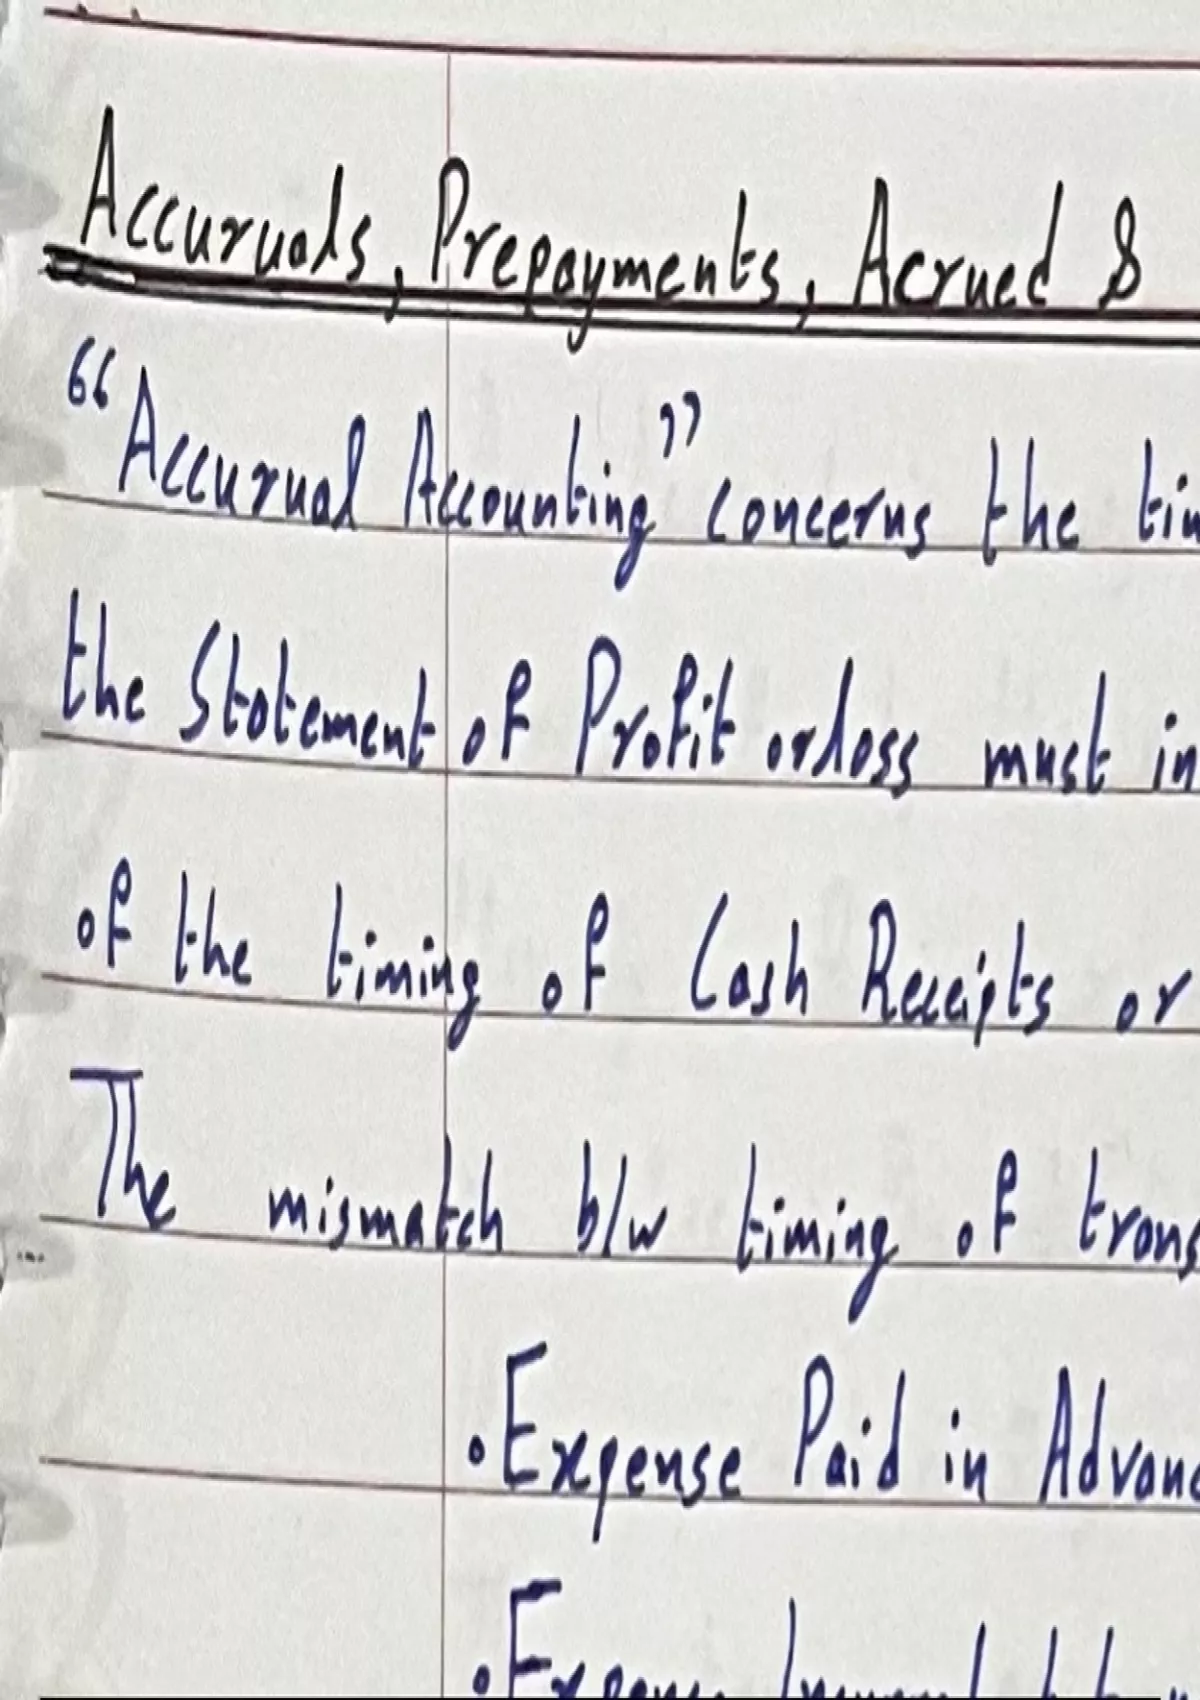 Accuruals, Prepayments, Acrued &
“Accurual Accounting” concerns the tim
the Statement of Profit or loss must in
of the timing of Cash Receipts or
The mismatch b/w timing of trans
• Expense Paid in Advanc
• Expense